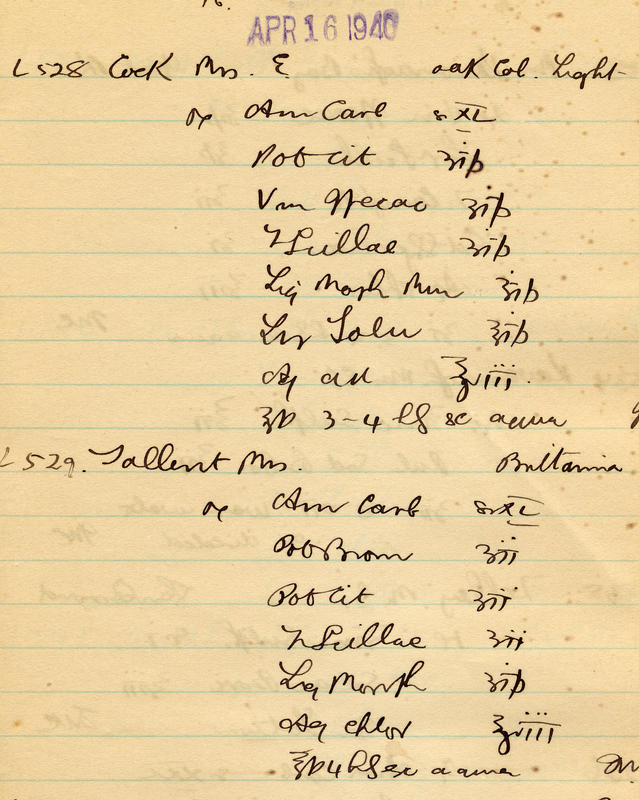 APR 16 1940
L528 Cock Mrs. E. oak Col. Light-
Rx Am Carb gr XL
Pot Cit ʒiß
Vin Ipecac ʒiß
T Scillae ʒiß
Liq Morph Mur ʒiß
Liq Tolu ʒiß
Aq ad ℥viii.
℥ß 3-4 hs ex aqua
L529. Tallent Mrs. Brittania
Rx Am Carb gr XL
Pot Brom ʒii
Pot Cit ʒii
T Scillae ʒii
Liq Morph ʒiß
Aq chlor ℥viii
℥ß 4 hs ex aqua